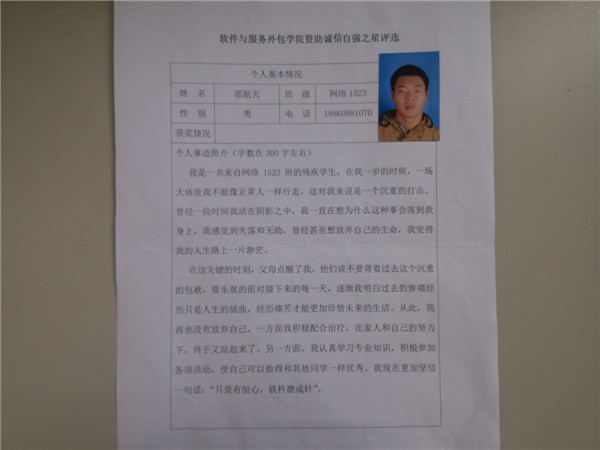 软件与服务外包学院资助诚信自强之星评选
个人基本情况
姓 名 邵航天 班 级 网络 1523
性 别 男 电 话 18860881070
获奖情况
个人事迹简介（字数在 300 字左右）
我是一名来自网络 1523 班的残疾学生，在我一岁的时候，一场
大病使我不能像正常人一样行走，这对我来说是一个沉重的打击。
曾经一段时间我活在阴影之中，我一直在想为什么这种事会落到我
身上，我感到失落和无助，曾经甚至想放弃自己的生命，我觉得
我的人生路上一片渺茫。
在这关键的时刻，父母点醒了我，他们说不要背着过去这个沉重
的包袱，要乐观的面对接下来的每一天，逐渐我明白过去的惨痛经
历只是人生的插曲，经历痛苦才能更加珍惜未来的生活。从此，我
再也没有放弃自己，一方面我积极配合治疗，在家人和自己的努力
下，终于又站起来了。另一方面，我认真学习专业知识，积极参加
各项活动，使自己可以做得和其他同学一样优秀。我现在更加坚信
一句话：“只要有恒心，铁杵磨成针”。